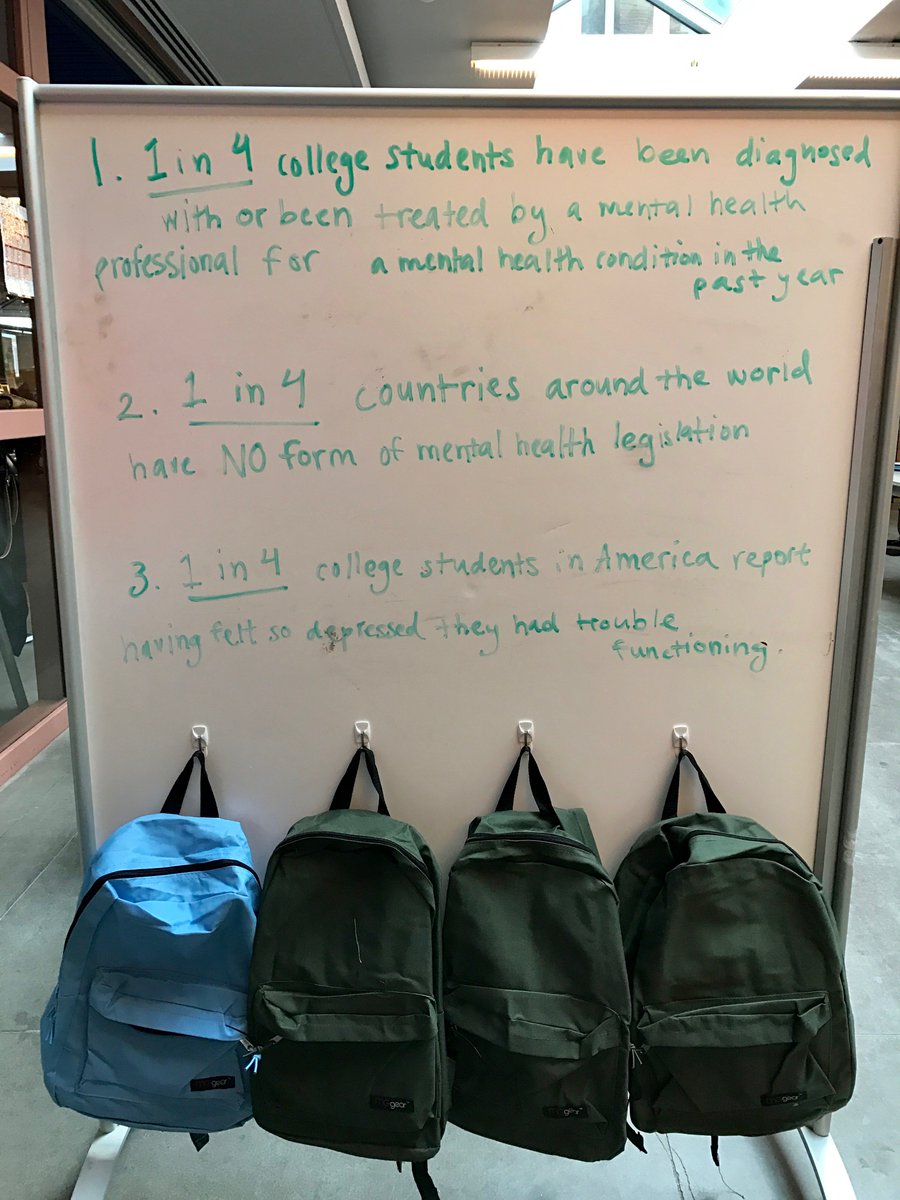 1. 1 in 4 college students have been diagnosed
with or been treated by a mental health
professional for a mental health condition in the
past year
2. 1 in 4 countries around the world
have NO form of mental health legislation
3. 1 in 4 college students in America report
having felt so depressed they had trouble
functioning.
gear
gear
gear
gear